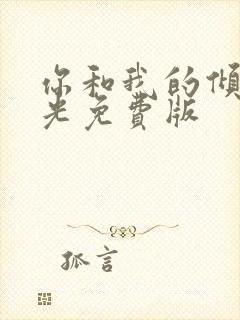 你和我的傾
光免費版
孤言